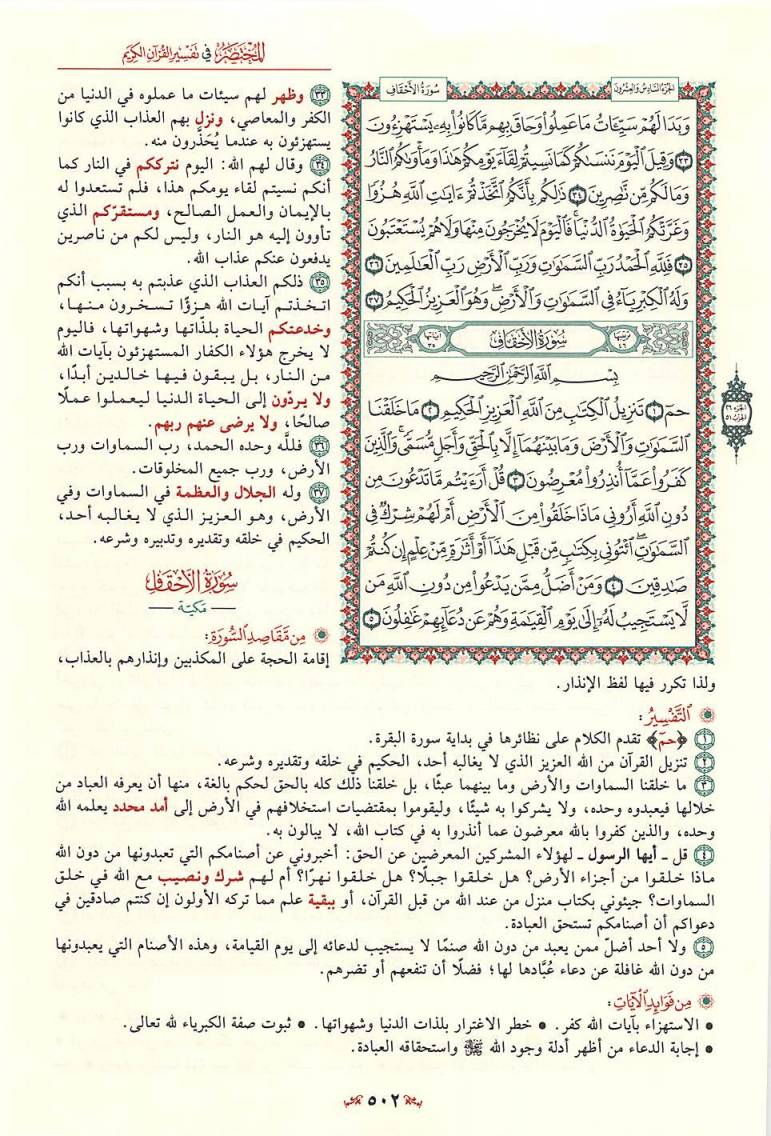 المختصر في تفسير القرآن الكريم
الجزء السادس والعشرون
سورة الأحقاف
وَبَدَا لَهُمْ سَيِّئَاتُ مَا عَمِلُوا وَحَاقَ بِهِم مَّا كَانُوا بِهِ يَسْتَهْزِءُونَ
٣٣ وَقِيلَ الْيَوْمَ نَنسَىٰكُمْ كَمَا نَسِيتُمْ لِقَاءَ يَوْمِكُمْ هَٰذَا وَمَأْوَىٰكُمُ النَّارُ
وَمَا لَكُم مِّن نَّٰصِرِينَ ٣٤ ذَٰلِكُم بِأَنَّكُمُ اتَّخَذْتُمْ ءَايَٰتِ اللَّهِ هُزُوًا
وَغَرَّتْكُمُ الْحَيَوٰةُ الدُّنْيَا فَالْيَوْمَ لَا يُخْرَجُونَ مِنْهَا وَلَا هُمْ يُسْتَعْتَبُونَ
٣٥ فَلِلَّهِ الْحَمْدُ رَبِّ السَّمَٰوَٰتِ وَرَبِّ الْأَرْضِ رَبِّ الْعَٰلَمِينَ ٣٦
وَلَهُ الْكِبْرِيَاءُ فِي السَّمَٰوَٰتِ وَالْأَرْضِ وَهُوَ الْعَزِيزُ الْحَكِيمُ ٣٧
ترتيبها ٤٦ سُورَةُ الْأَحْقَافِ آياتها ٣٥
بِسْمِ اللَّهِ الرَّحْمَٰنِ الرَّحِيمِ
حمٓ ١ تَنزِيلُ الْكِتَٰبِ مِنَ اللَّهِ الْعَزِيزِ الْحَكِيمِ ٢ مَا خَلَقْنَا
السَّمَٰوَٰتِ وَالْأَرْضَ وَمَا بَيْنَهُمَا إِلَّا بِالْحَقِّ وَأَجَلٍ مُّسَمًّى وَالَّذِينَ
كَفَرُوا عَمَّا أُنذِرُوا مُعْرِضُونَ ٣ قُلْ أَرَءَيْتُم مَّا تَدْعُونَ مِن
دُونِ اللَّهِ أَرُونِي مَاذَا خَلَقُوا مِنَ الْأَرْضِ أَمْ لَهُمْ شِرْكٌ فِي
السَّمَٰوَٰتِ ائْتُونِي بِكِتَٰبٍ مِّن قَبْلِ هَٰذَا أَوْ أَثَٰرَةٍ مِّنْ عِلْمٍ إِن كُنتُمْ
صَٰدِقِينَ ٤ وَمَنْ أَضَلُّ مِمَّن يَدْعُوا مِن دُونِ اللَّهِ مَن
لَّا يَسْتَجِيبُ لَهُ إِلَىٰ يَوْمِ الْقِيَٰمَةِ وَهُمْ عَن دُعَائِهِمْ غَٰفِلُونَ ٥
الجزء ٢٦
الحزب ٥١
٣٣ وظهر لهم سيئات ما عملوه في الدنيا من
الكفر والمعاصي، ونزل بهم العذاب الذي كانوا
يستهزئون به عندما يُحَذَّرون منه.
٣٤ وقال لهم الله: اليوم نترككم في النار كما
أنكم نسيتم لقاء يومكم هذا، فلم تستعدوا له
بالإيمان والعمل الصالح، ومستقرّكم الذي
تأوون إليه هو النار، وليس لكم من ناصرين
يدفعون عنكم عذاب الله.
٣٥ ذلكم العذاب الذي عذبتم به بسبب أنكم
اتخذتم آيات الله هزؤًا تسخرون منها،
وخدعتكم الحياة بلذَّاتها وشهواتها، فاليوم
لا يخرج هؤلاء الكفار المستهزئون بآيات الله
من النار، بل يبقون فيها خالدين أبدًا،
ولا يردّون إلى الحياة الدنيا ليعملوا عملًا
صالحًا، ولا يرضى عنهم ربهم.
٣٦ فللَّه وحده الحمد، رب السماوات ورب
الأرض، ورب جميع المخلوقات.
٣٧ وله الجلال والعظمة في السماوات وفي
الأرض، وهو العزيز الذي لا يغالبه أحد،
الحكيم في خلقه وتقديره وتدبيره وشرعه.
سورة الأحقاف
— مكية —
من مقاصد السورة:
إقامة الحجة على المكذبين وإنذارهم بالعذاب،
ولذا تكرر فيها لفظ الإنذار.
التفسير:
١ ﴿حمٓ﴾ تقدم الكلام على نظائرها في بداية سورة البقرة.
٢ تنزيل القرآن من الله العزيز الذي لا يغالبه أحد، الحكيم في خلقه وتقديره وشرعه.
٣ ما خلقنا السماوات والأرض وما بينهما عبثًا، بل خلقنا ذلك كله بالحق لحكم بالغة، منها أن يعرفه العباد من
خلالها فيعبدوه وحده، ولا يشركوا به شيئًا، وليقوموا بمقتضيات استخلافهم في الأرض إلى أمد محدد يعلمه الله
وحده، والذين كفروا بالله معرضون عما أنذروا به في كتاب الله، لا يبالون به.
٤ قل ـ أيها الرسول ـ لهؤلاء المشركين المعرضين عن الحق: أخبروني عن أصنامكم التي تعبدونها من دون الله
ماذا خلقوا من أجزاء الأرض؟ هل خلقوا جبلًا؟ هل خلقوا نهرًا؟ أم لهم شرك ونصيب مع الله في خلق
السماوات؟ جيئوني بكتاب منزل من عند الله من قبل القرآن، أو ببقية علم مما تركه الأولون إن كنتم صادقين في
دعواكم أن أصنامكم تستحق العبادة.
٥ ولا أحد أضلّ ممن يعبد من دون الله صنمًا لا يستجيب لدعائه إلى يوم القيامة، وهذه الأصنام التي يعبدونها
من دون الله غافلة عن دعاء عُبَّادها لها؛ فضلًا أن تنفعهم أو تضرهم.
من فوائد الآيات:
• الاستهزاء بآيات الله كفر. • خطر الاغترار بلذات الدنيا وشهواتها. • ثبوت صفة الكبرياء لله تعالى.
• إجابة الدعاء من أظهر أدلة وجود الله ﷻ واستحقاقه العبادة.
٥٠٢